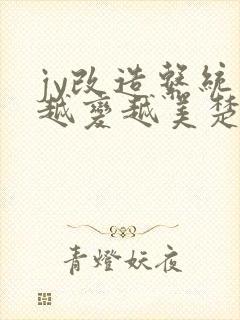 jy改造繫統
越變越美楚
青燈妖夜